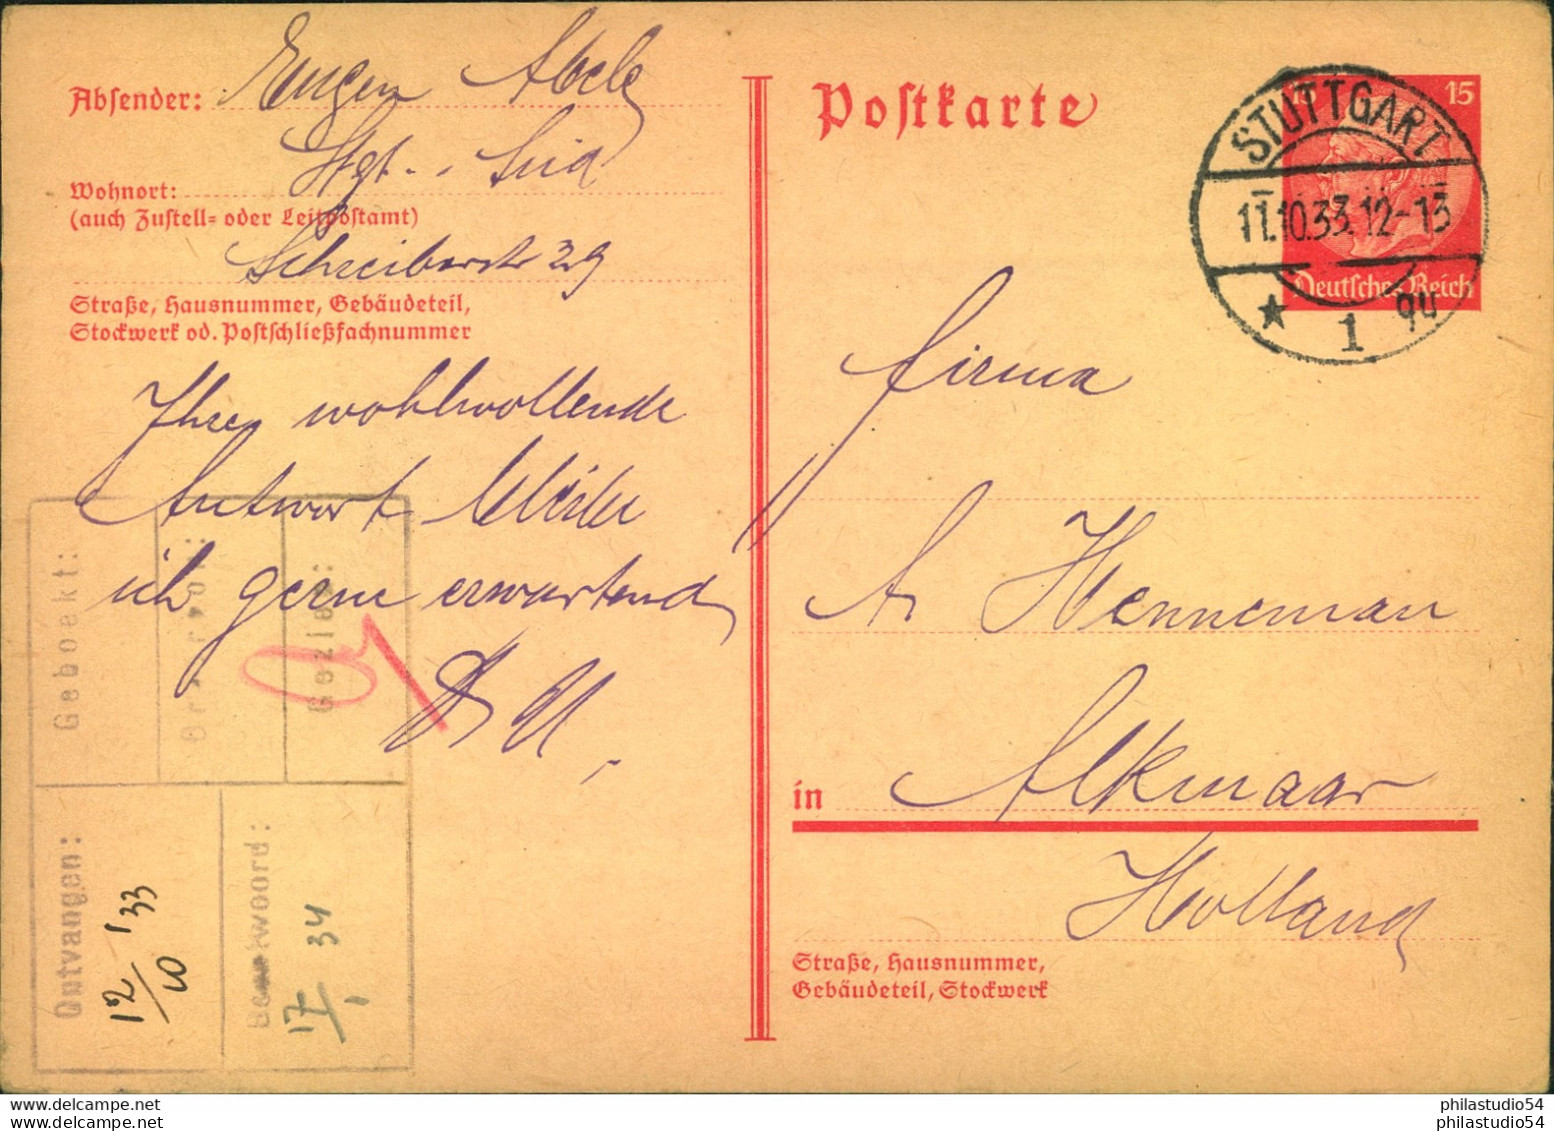 Absender: Eugen Abele
Stgt. - Süd
Wohnort:
(auch Zustell- oder Leitpostamt)
Schreiberstr 29
Straße, Hausnummer, Gebäudeteil,
Stockwerk od. Postschließfachnummer
Ihre wohlwollende
Antwort
ich gerne erwartend
Geboekt:
Gezien:
Ontvangen:
12/10 '33
Beantwoord:
17/1 34
Postkarte
15
STUTTGART
11.10.33.12-13
★ 1 9u
Deutsches Reich
Firma
A. Henneman
in Alkmaar
Holland
Straße, Hausnummer,
Gebäudeteil, Stockwerk
philastudio54
philastudio54
www.delcampe.net
www.delcampe.net